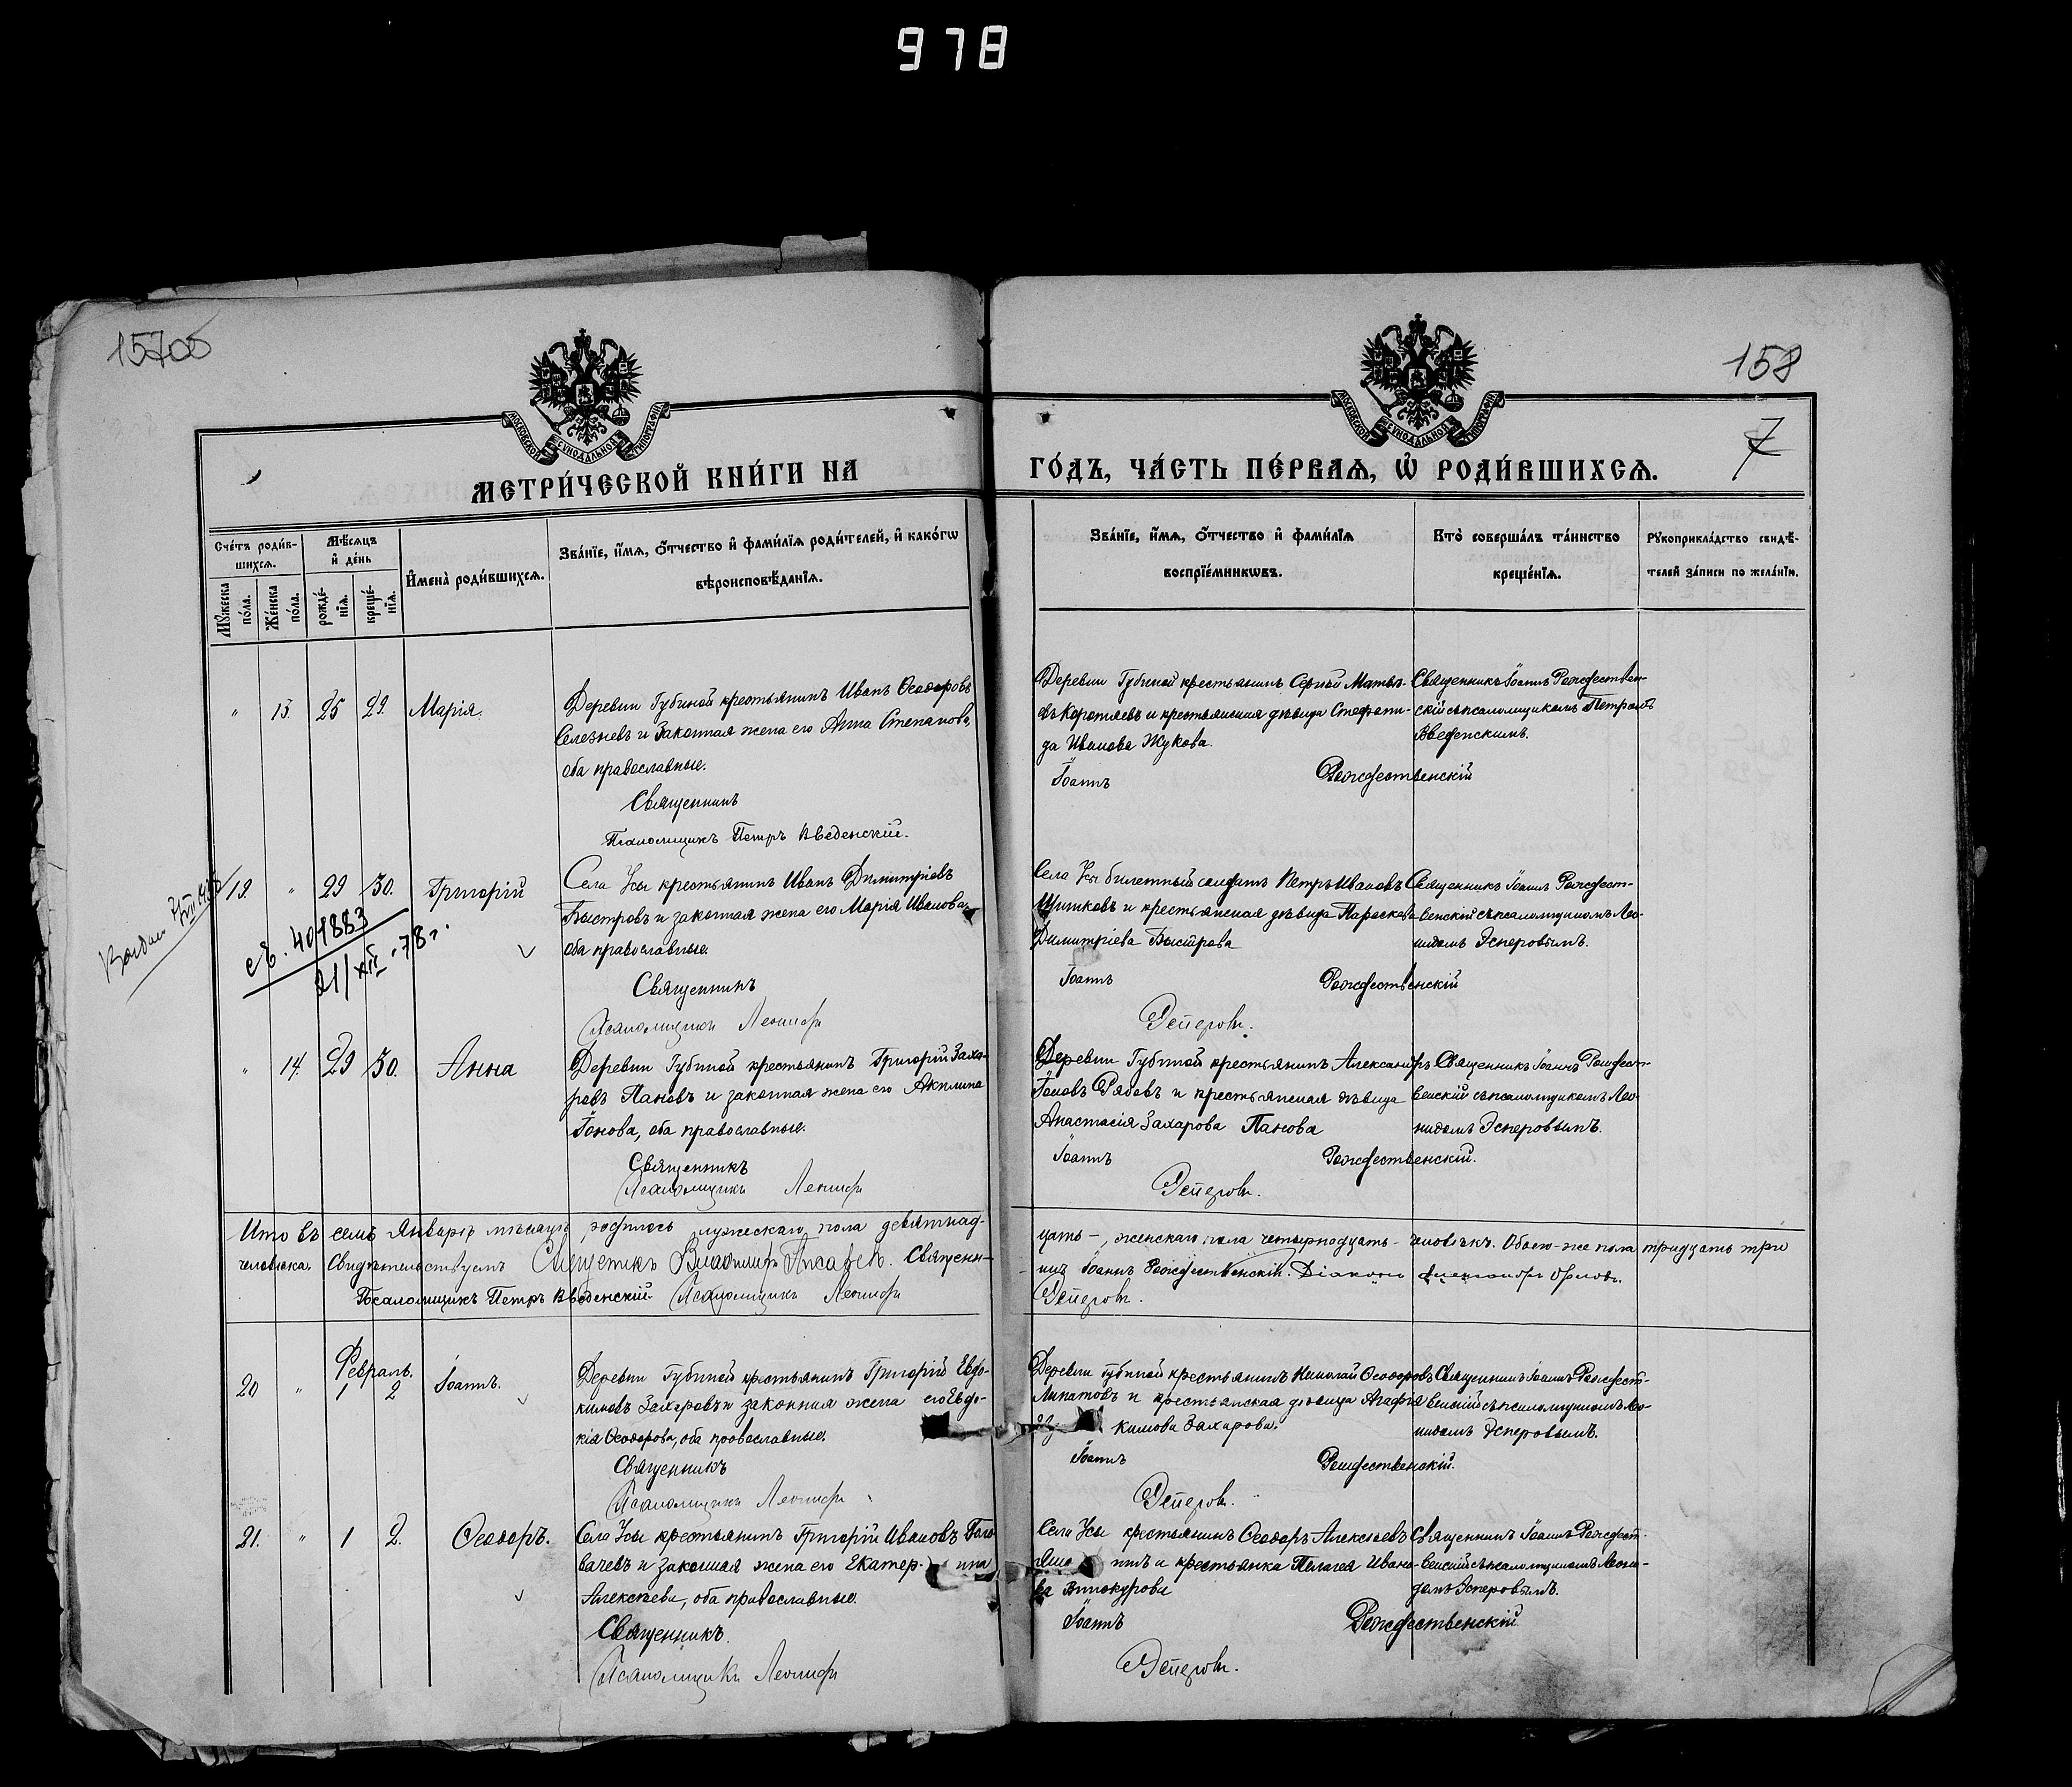 978
15706
158
7
МОСКОВСКОЙ СѴНОДАЛЬНОЙ ТИПОГРАФІИ
МОСКОВСКОЙ СѴНОДАЛЬНОЙ ТИПОГРАФІИ
МЕТРИ́ЧЕСКОЙ КНИ́ГИ НА
ГО́ДЪ, ЧА́СТЬ ПЕ́РВАѦ, Ѡ҆ РОДИ́ВШИХСѦ.
Сче́тъ роди́в-
шихсѧ.
Мѣ́сѧцъ
и҆ де́нь
Мꙋ́жеска
по́ла.
Же́нска
по́ла.
рожде́-
нїѧ.
креще́-
нїѧ.
И҆мена̀ роди́вшихсѧ.
Зва́нїе, и҆́мѧ, ѻ҆́тчество и҆ фами́лїѧ роди́телей, и҆ како́гѡ
вѣроисповѣ́данїѧ.
Зва́нїе, и҆́мѧ, ѻ҆́тчество и҆ фами́лїѧ
воспрїе́мникѡвъ.
Кто̀ соверша́лъ та́инство
креще́нїѧ.
Рꙋкоприкла́дство свидѣ́-
телей за́писи по жела́нїю.
" 13. 25 29. Марія.
Деревни Губиной крестьянинъ Иванъ Ѳеодоровъ
Селезневъ и законная жена его Анна Степанова,
оба православные.
Священникъ
Псаломщикъ Петръ Введенскій.
Деревни Губиной крестьянинъ Сергѣй Матвѣ-
евъ Коротяевъ и крестьянская дѣвица Стефани-
да Иванова Жукова.
Іоаннъ Рождественскій
Священникъ Іоаннъ Рождествен-
скій съ псаломщикомъ Петромъ
Введенскимъ.
19. " 29 30. Григорій
св. 401883
21/XII-78г.
Села Усы крестьянинъ Иванъ Димитріевъ
Быстровъ и законная жена его Марія Иванова,
оба православные.
Священникъ
Псаломщикъ Леонидъ
Села Усы билетный солдатъ Петръ Ивановъ
Щитковъ и крестьянская дѣвица Параскева
Димитріева Быстрова
Іоаннъ Рождественскій
Эсперовъ.
Священникъ Іоаннъ Рождест-
венскій съ псаломщикомъ Лео-
нидомъ Эсперовымъ.
" 14. 29 30. Анна
Деревни Губиной крестьянинъ Григорій Заха-
ровъ Пановъ и законная жена его Акилина
Іонова, оба православные.
Священникъ
Псаломщикъ Леонидъ
Деревни Губиной крестьянинъ Александръ
Іоновъ Рябовъ и крестьянская дѣвица
Анастасія Захарова Панова
Іоаннъ Рождественскій.
Эсперовъ.
Священникъ Іоаннъ Рождест-
венскій съ псаломщикомъ Лео-
нидомъ Эсперовымъ.
Итого въ семъ Январѣ мѣсяцѣ родилось мужескаго пола девятнад-
цать –, женскаго пола четырнадцать – человѣкъ. Обоего-же пола тридцать три
человѣка. Свидѣтельствуемъ Священн-
икъ Іоаннъ Рождественскій. Діаконъ Александръ Орловъ.
Псаломщикъ Петръ Введенскій. Псаломщикъ Леонидъ
Эсперовъ.
Февраль.
20 " 1 2 Іоаннъ.
Деревни Губиной крестьянинъ Григорій Евдо-
кимовъ Захаровъ и законная жена его Евдо-
кія Ѳеодорова, оба православные.
Священникъ
Псаломщикъ Леонидъ
Деревни Губиной крестьянинъ Николай Ѳеодоровъ
Липатовъ и крестьянская дѣвица Агафія
кимова Захарова.
Іоаннъ Рождественскій.
Эсперовъ.
Священникъ Іоаннъ Рождест-
венскій съ псаломщикомъ Лео-
нидомъ Эсперовымъ.
21. " 1 2. Ѳеодоръ.
Села Усы крестьянинъ Григорій Ивановъ Голо-
вачевъ и законная жена его Екатерина
Алексѣева, оба православные.
Священникъ.
Псаломщикъ Леонидъ
Села Усы крестьянинъ Ѳеодоръ Алексѣевъ
и крестьянка Пелагея Ивано-
ва Винокурова
Іоаннъ Рождественскій
Эсперовъ.
Священникъ Іоаннъ Рождест-
венскій съ псаломщикомъ Леони-
домъ Эсперовымъ.